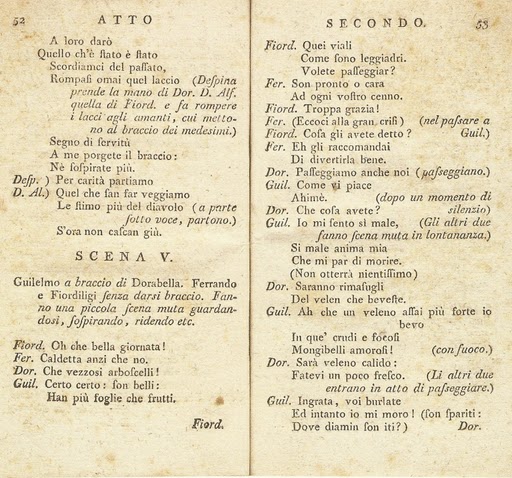 52 ATTO
A loro darò
Quello ch'è ſtato è ſtato
Scordiamci del paſſato,
Rompaſi omai quel laccio (Deſpina
prende la mano di Dor. D. Alf.
quella di Fiord. e fa rompere
i lacci agli amanti, cui metto-
no al braccio dei medeſimi.)
Segno di ſervitù
A me porgete il braccio:
Nè ſoſpirate più.
Deſp. ) Per carità partiamo
D. Al.) Quel che ſan far veggiamo
Le ſtimo più del diavolo (a parte
ſotto voce, partono.)
S'ora non caſcan giù.
SCENA V.
Guilelmo a braccio di Dorabella. Ferrando
e Fiordiligi ſenza darsi braccio. Fan-
no una piccola ſcena muta guardan-
doſi, ſoſpirando, ridendo etc.
Fiord. Oh che bella giornata!
Fer. Caldetta anzi che no.
Dor. Che vezzosi arboſcelli!
Guil. Certo certo: ſon belli:
Han più foglie che frutti.
Fiord.
SECONDO. 53
Fiord. Quei viali
Come ſono leggiadri.
Volete paſſeggiar?
Fer. Son pronto o cara
Ad ogni voſtro cenno.
Fiord. Troppa grazia!
Fer. (Eccoci alla gran criſi) (nel paſsare a
Fiord. Coſa gli avete detto? Guil.)
Fer. Eh gli raccomandai
Di divertirla bene.
Dor. Paſſeggiamo anche noi (paſſeggiano.)
Guil. Come vi piace
Ahimè. (dopo un momento di
Dor. Che coſa avete? ſilenzio)
Guil. Io mi ſento sì male, (Gli altri due
fanno ſcena muta in lontananza.)
Si male anima mia
Che mi par di morire.
(Non otterrà nientiſſimo)
Dor. Saranno rimaſugli
Del velen che beveſte.
Guil. Ah che un veleno aſſai più forte io
bevo
In que' crudi e focoſi
Mongibelli amoroſi! (con fuoco.)
Dor. Sarà veleno calido:
Fatevi un poco freſco. (Li altri due
entrano in atto di paſseggiare.)
Guil. Ingrata, voi burlate
Ed intanto io mi moro! (ſon ſpariti:
Dove diamin ſon iti?) Dor.